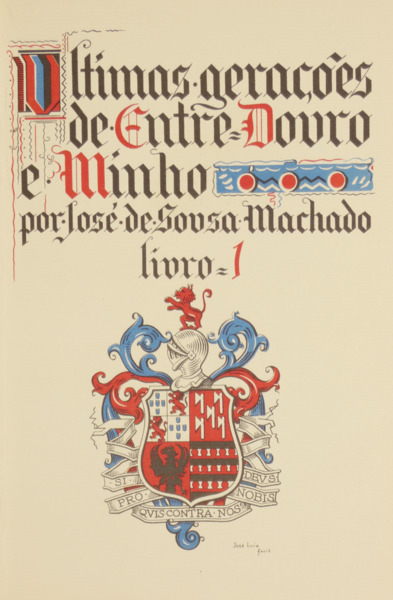 Ultimas·gerações
de·Entre=Douro
e·Minho
por·José·de·Sousa·Machado
livro=1
SI DEVS
PRO NOBIS
QVIS CONTRA NOS
José Luiz